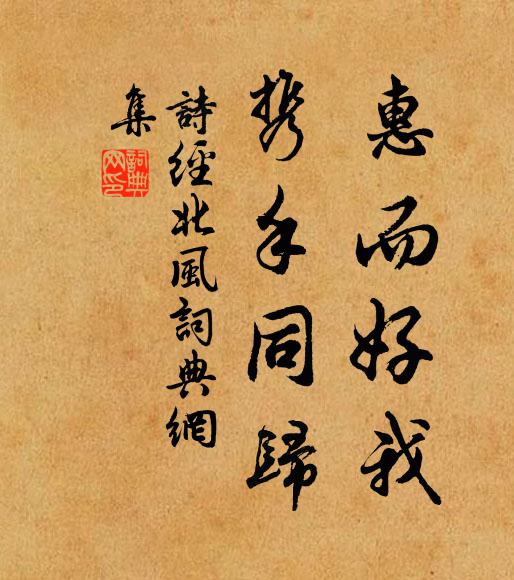 惠而好我
携手同歸
詩經北風詞典網
集
詞典
网印